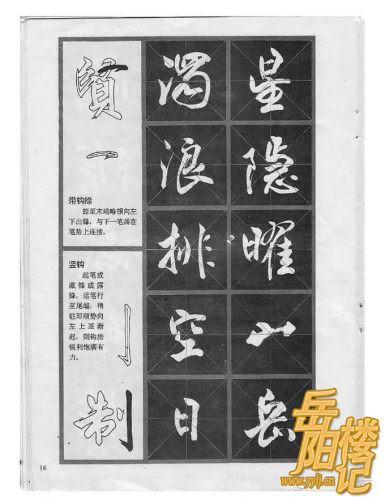 星隐曜山岳
濁浪排空日
賓
带钩横
横至末端略顿向左
下出锋，与下一笔画在
笔势上连接。
竖钩
起笔或
藏锋或露
锋，运笔行
至尾端，稍
驻即顺势向
左上逐渐
起，则钩法
锐利饱满有
力。
制
16
岳阳楼记
www.yylj.cn